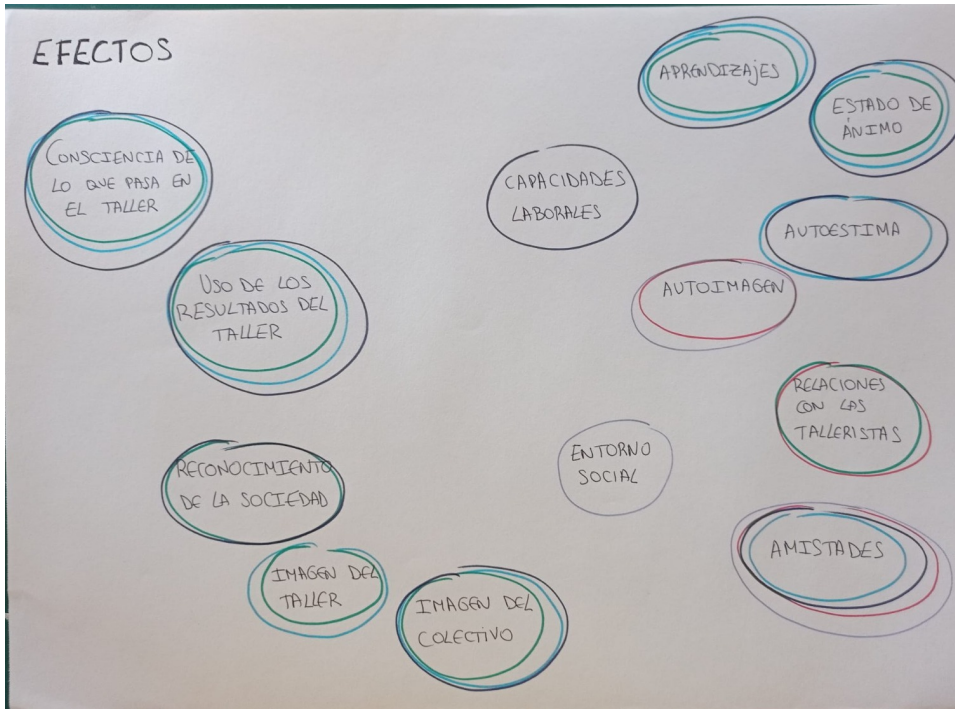 EFECTOS
CONSCIENCIA DE
LO QUE PASA EN
EL TALLER
USO DE LOS
RESULTADOS DEL
TALLER
RECONOCIMIENTO
DE LA SOCIEDAD
IMAGEN DEL
TALLER
IMAGEN DEL
COLECTIVO
CAPACIDADES
LABORALES
ENTORNO
SOCIAL
APRENDIZAjES
ESTADO DE
ÁNIMO
AUTOESTIMA
AUTOIMAGEN
RELACIONES
CON LAS
TALLERISTAS
AMISTADES